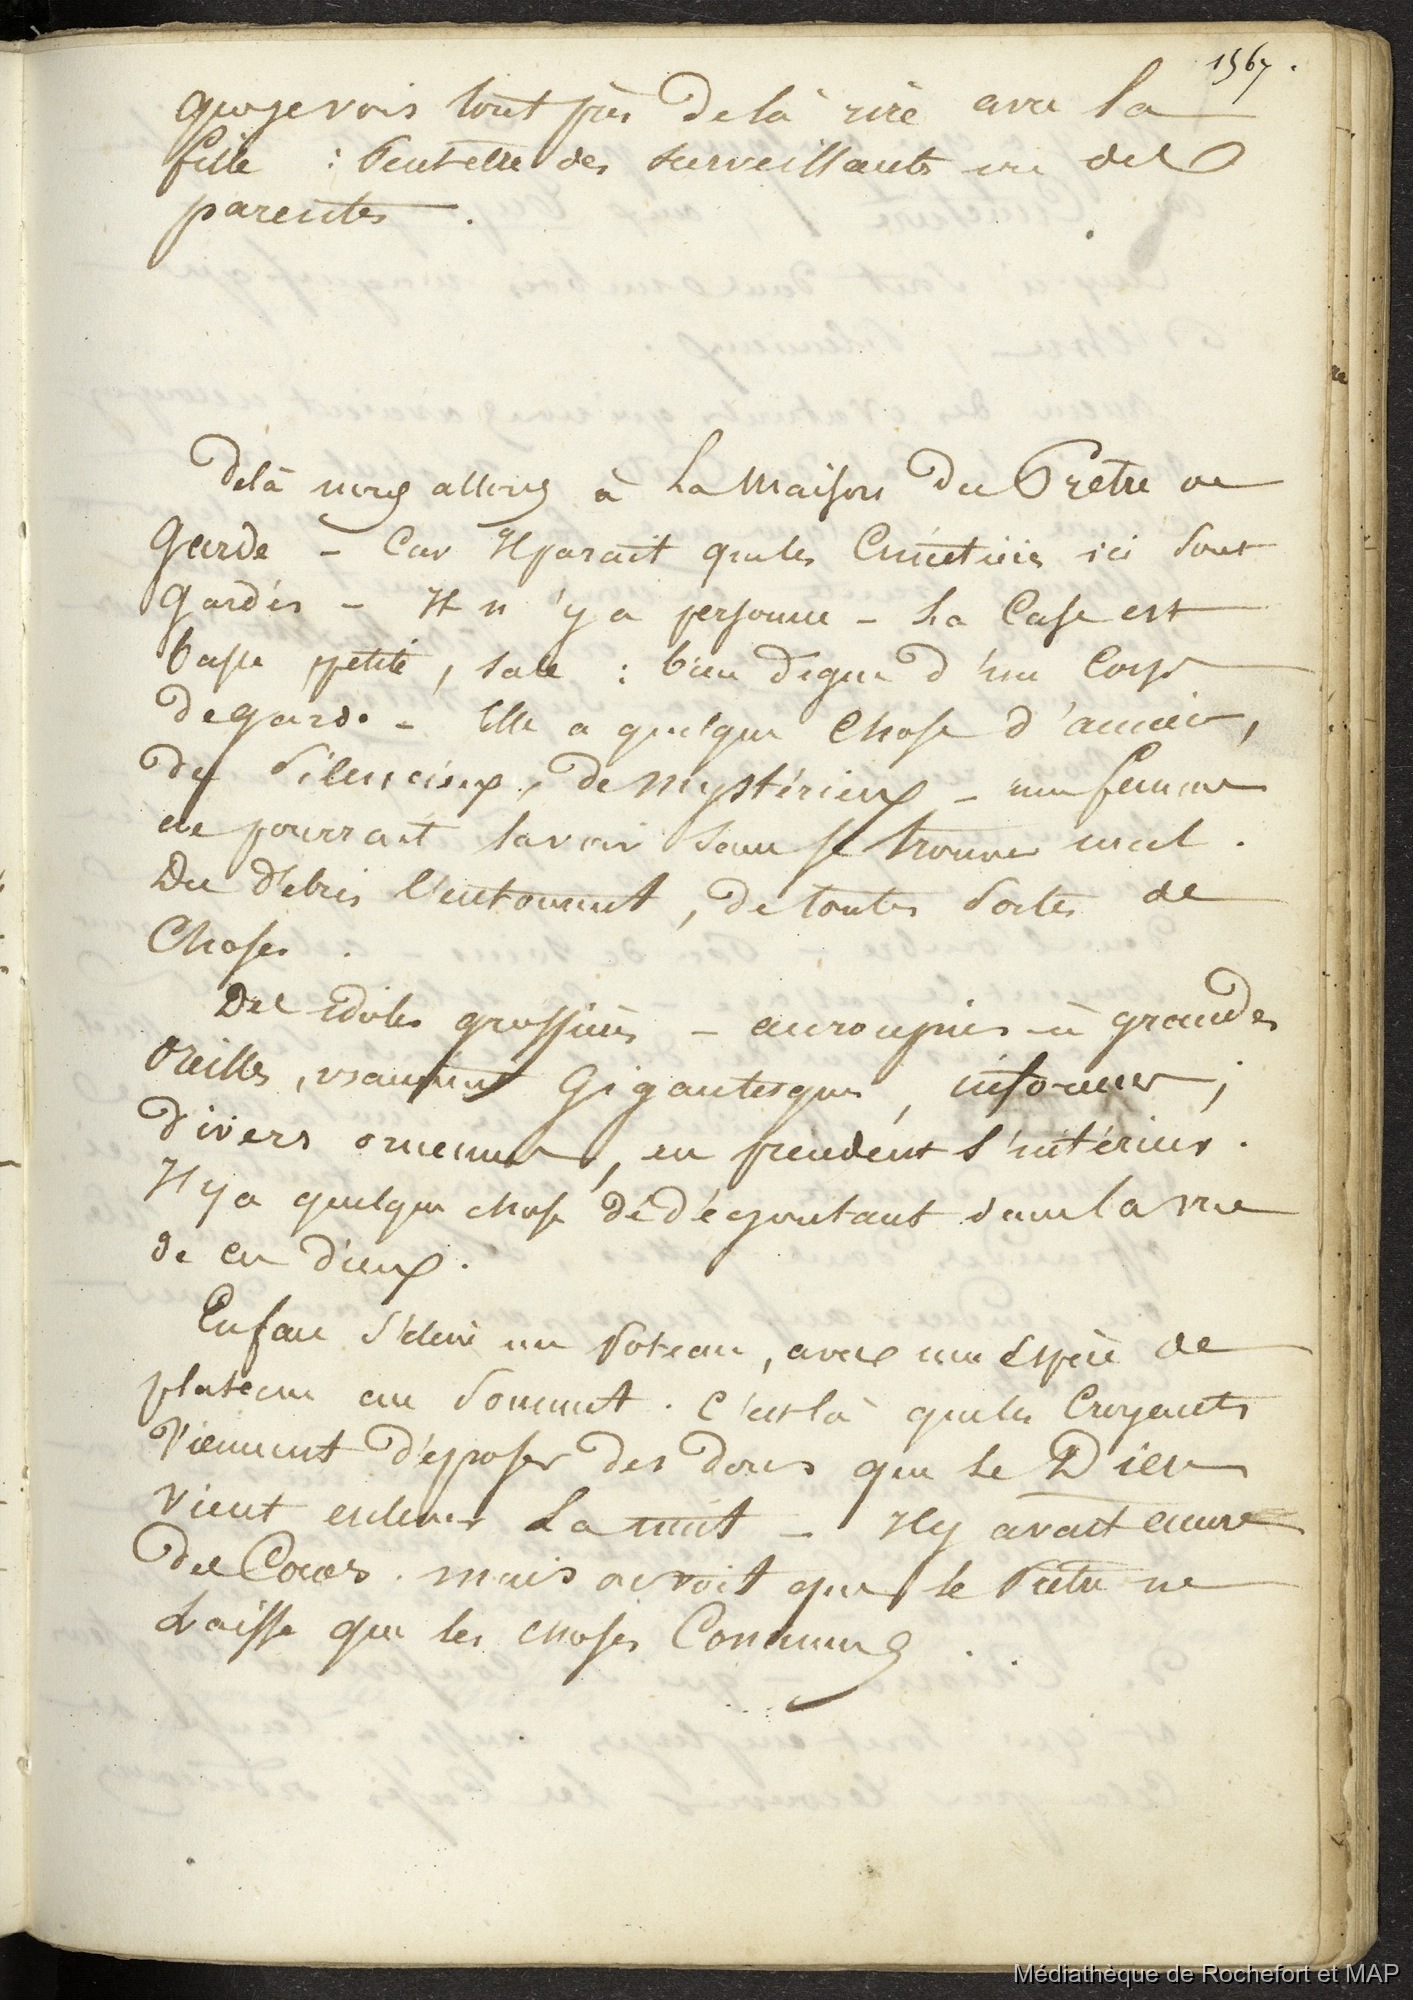 1567.
que je vois tout près de là rire avec la
fille : Peut etre des surveillants ou des
parentes.
De là nous allons à la Maison du Prêtre ou
Garde - Car Il parait que les Cimetières ici sont
Gardés - Il n'y a personne - La Case est
basse petite, sale : bien digne d'un Corps
de garde - Elle a quelque chose d'ancien,
de silencieux, de mystérieux - une femme
ne pourrait la voir sans se trouver mal.
Des débris l'entourent, de toutes sortes de
Choses.
Des idoles grossières - accroupies à grandes
oreilles, Gigantesques, informes ;
divers ornements, en pendent à l'intérieur.
Il y a quelque chose de dégoutant dans la vue
de ces dieux.
En face s'élève un Poteau, avec une espèce de
plateau au sommet. C'est là que les Croyants
viennent déposer des dons que le Dieu
vient enlever La nuit - Il y avait encore
des Cocos. mais on voit que le Prêtre ne
Laisse que les choses Communes.
Médiathèque de Rochefort et MAP